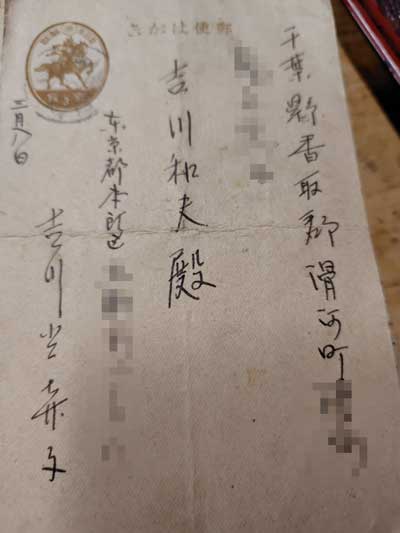 郵便はかき
千葉縣香取郡滑河町
吉川和夫殿
東京都本所区
吉川
月八日